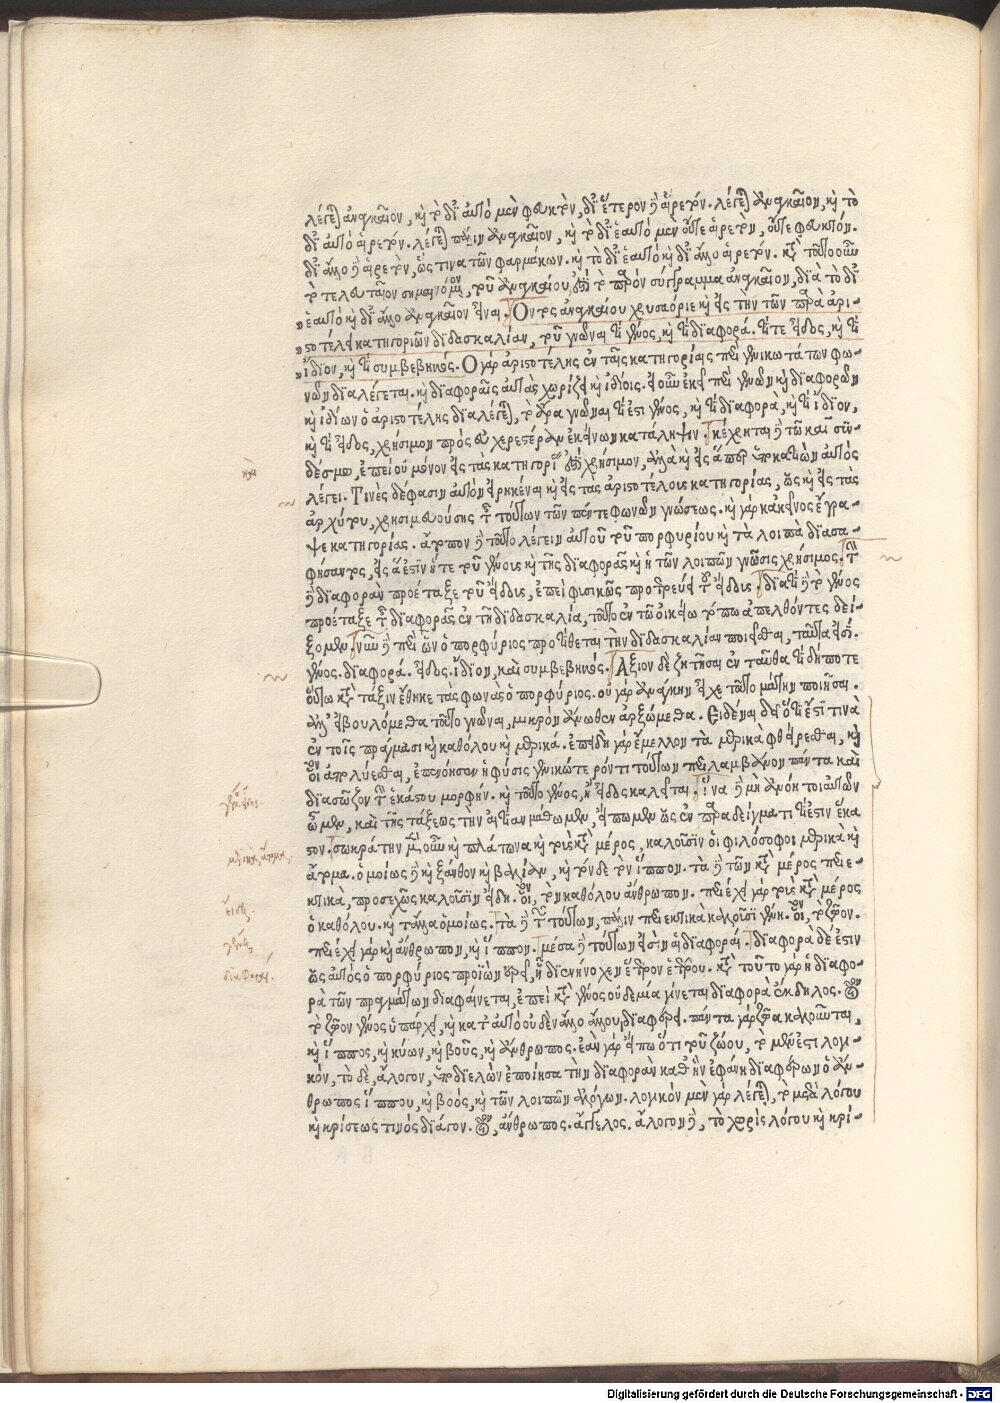 λέγεται ἀναγκαῖον, καὶ τὸ δι᾽ αὐτὸ μὲν φευκτὸν, δι᾽ ἕτερον δὲ αἱρετόν. λέγεται ἀναγκαῖον, καὶ τὸ
δι᾽ αὐτὸ αἱρετόν. λέγεται πάλιν ἀναγκαῖον, καὶ τὸ δι᾽ ἑαυτὸ μὲν οὔτε αἱρετὸν, οὔτε φευκτόν.
δι᾽ ἄλλο δὲ αἱρετὸν, ὥς τινα τῶν φαρμάκων. καὶ τὸ δι᾽ ἑαυτὸ καὶ δι᾽ ἄλλο αἱρετόν. κατὰ τοῦτο οὖν
τὸ τελευταῖον σημαινόμενον, τοῦ ἀναγκαίου, ἐστὶ τὸ παρὸν σύγγραμμα ἀναγκαῖον, διὰ τὸ δι᾽
ἑαυτὸ καὶ δι᾽ ἄλλο ἀναγκαῖον εἶναι. Ὄντος ἀναγκαίου χρυσαόριε καὶ εἰς τὴν τῶν παρὰ ἀρι-
στοτέλει κατηγοριῶν διδασκαλίαν, τοῦ γνῶναι τί γένος, καὶ τί διαφορά. τί τε εἶδος, καὶ τί
ἴδιον, καὶ τί συμβεβηκός. Ὁ γὰρ ἀριστοτέλης ἐν ταῖς κατηγορίαις περὶ γενικωτάτων φω-
νῶν διαλέγεται. καὶ διαφοραῖς αὐτὰς χωρίζει καὶ ἰδίοις. εἰ οὖν ἐκεῖ περὶ γενῶν καὶ διαφορῶν
καὶ ἰδίων ὁ ἀριστοτέλης διαλέγεται, τὸ ἄρα γνῶναι τί ἐστι γένος, καὶ τί διαφορὰ, καὶ τί ἴδιον,
καὶ τί εἶδος, χρήσιμον πρὸς εὐχερεστέραν ἐκείνων κατάληψιν. κέχρηται δὲ τῶ καὶ συν-
δέσμω, ἐπεὶ οὐ μόνον εἰς τὰς κατηγορίας ἐστὶ χρήσιμον, ἀλλὰ καὶ εἰς ἅπερ ὑποκατιὼν αὐτὸς
λέγει. Τινὲς δέ φασιν αὐτὸν εἰρηκέναι καὶ εἰς τὰς ἀριστοτέλους κατηγορίας, ὡς καὶ εἰς τὰς
ἀρχύτου, χρησιμευούσης τῆς τούτων τῶν πέντε φωνῶν γνώσεως. καὶ γὰρ κἀκεῖνος ἔγρα-
ψε κατηγορίας. ἄτοπον δὲ τοῦτο λέγειν αὐτοῦ τοῦ πορφυρίου καὶ τὰ λοιπὰ διασα-
φήσαντος, εἰς ἅ ἐστιν ἥτε τοῦ γένους καὶ τῆς διαφορᾶς καὶ ἡ τῶν λοιπῶν γνῶσις χρήσιμος. τὴν
δὲ διαφορὰν προέταξε τοῦ εἴδους, ἐπεὶ φυσικῶς προτερεύει τοῦ εἴδους. διὰ τί δὲ τὸ γένος
προέταξε τῆς διαφορᾶς ἐν τῇ διδασκαλία, τοῦτο ἐν τῶ οἰκείω τόπω ἀπελθόντες δεί-
ξομεν. νῦν δὲ περὶ ὧν ὁ πορφύριος προτίθεται τὴν διδασκαλίαν ποιεῖσθαι, ταῦτα εἰσί.
γένος. διαφορά. εἶδος. ἴδιον, καὶ συμβεβηκός. Ἄξιον δὲ ζητῆσαι ἐνταῦθα τί δήποτε
οὕτω κατὰ τάξιν ἔθηκε τὰς φωνὰς ὁ πορφύριος. οὐ γὰρ ἀνάγκην εἶχε τοῦτο μάτην ποιῆσαι.
ἀλλ᾽ εἰ βουλόμεθα τοῦτο γνῶναι, μικρὸν ἄνωθεν ἀρξώμεθα. Εἰδέναι δεῖ ὅτι ἐστί τινὰ
ἐν τοῖς πράγμασι καὶ καθόλου καὶ μερικά. ἐπειδὴ γὰρ ἔμελλον τὰ μερικὰ φθείρεσθαι, καὶ
οἷον ἀπολύεσθαι, ἐπενόησεν ἡ φύσις γενικώτερόν τι τούτων περιλαμβάνον πάντα καὶ
διασῶζον τὴν ἑκάστου μορφήν. καὶ τοῦτο γένος, ἢ εἶδος καλεῖται. ἵνα δὲ μὴ ἀνόητοι αὐτῶν
ὦμεν, καὶ τῆς τάξεως τὴν αἰτίαν μάθωμεν, εἴπωμεν ὡς ἐν παραδείγματι τί ἐστιν ἕκα
στον. σωκράτην μὲν οὖν καὶ πλάτωνα καὶ τοὺς κατὰ μέρος, καλοῦσιν οἱ φιλόσοφοι μερικὰ καὶ
ἄτομα. ὁμοίως δὲ καὶ ξάνθον καὶ βαλίαν, καὶ τόνδε τὸν ἵππον. τὰ δὲ τῶν κατὰ μέρος περιε-
κτικὰ, προσεχῶς καλοῦσιν εἴδη. οἷον, τὸν καθόλου ἄνθρωπον. περιέχει γὰρ τοὺς κατὰ μέρος
ὁ καθόλου. καὶ τἆλλα ὁμοίως. τὰ δὲ τούτων, πάλιν περιεκτικὰ καλοῦσι γένη. οἷον, τὸ ζῶον.
περιέχει γὰρ καὶ ἄνθρωπον, καὶ ἵππον. μέσα δὲ τούτων εἰσὶν αἱ διαφοραί. διαφορὰ δέ ἐστιν
ὡς αὐτὸς ὁ πορφύριος προϊὼν ἐρεῖ, ᾗ διενήνοχεν ἕτερον ἑτέρου. κατὰ τοῦτο γὰρ ἡ διαφο-
ρὰ τῶν πραγμάτων διαφαίνεται, ἐπεὶ κατὰ γένος οὐδεμία γίνεται διαφορὰ ἔκδηλος. οἷον
τὸ ζῶον γένος ὑπάρχει, καὶ κατ᾽ αὐτὸ οὐδὲν ἄλλο ἄλλου διαφέρει. πάντα γὰρ ζῶα καλοῦνται,
καὶ ἵππος, καὶ κύων, καὶ βοῦς, καὶ ἄνθρωπος. ἐὰν γὰρ εἴπω ὅτι τοῦ ζώου, τὸ μέν ἐστι λογι-
κόν, τὸ δὲ, ἄλογον, ὑποδιελὼν ἐποίησα τὴν διαφορὰν καθ᾽ ἣν ἐφάνη διαφέρων ὁ ἄν-
θρωπος ἵππου, καὶ βοός, καὶ τῶν λοιπῶν ἀλόγων. λογικὸν μὲν γὰρ λέγεται, τὸ μετὰ λόγου
καὶ κρίσεως τινὸς διάγον. οἷον, ἄνθρωπος. ἄγγελος. ἄλογον δὲ, τὸ χωρὶς λόγου καὶ κρί-
Digitalisierung gefördert durch die Deutsche Forschungsgemeinschaft - DFG